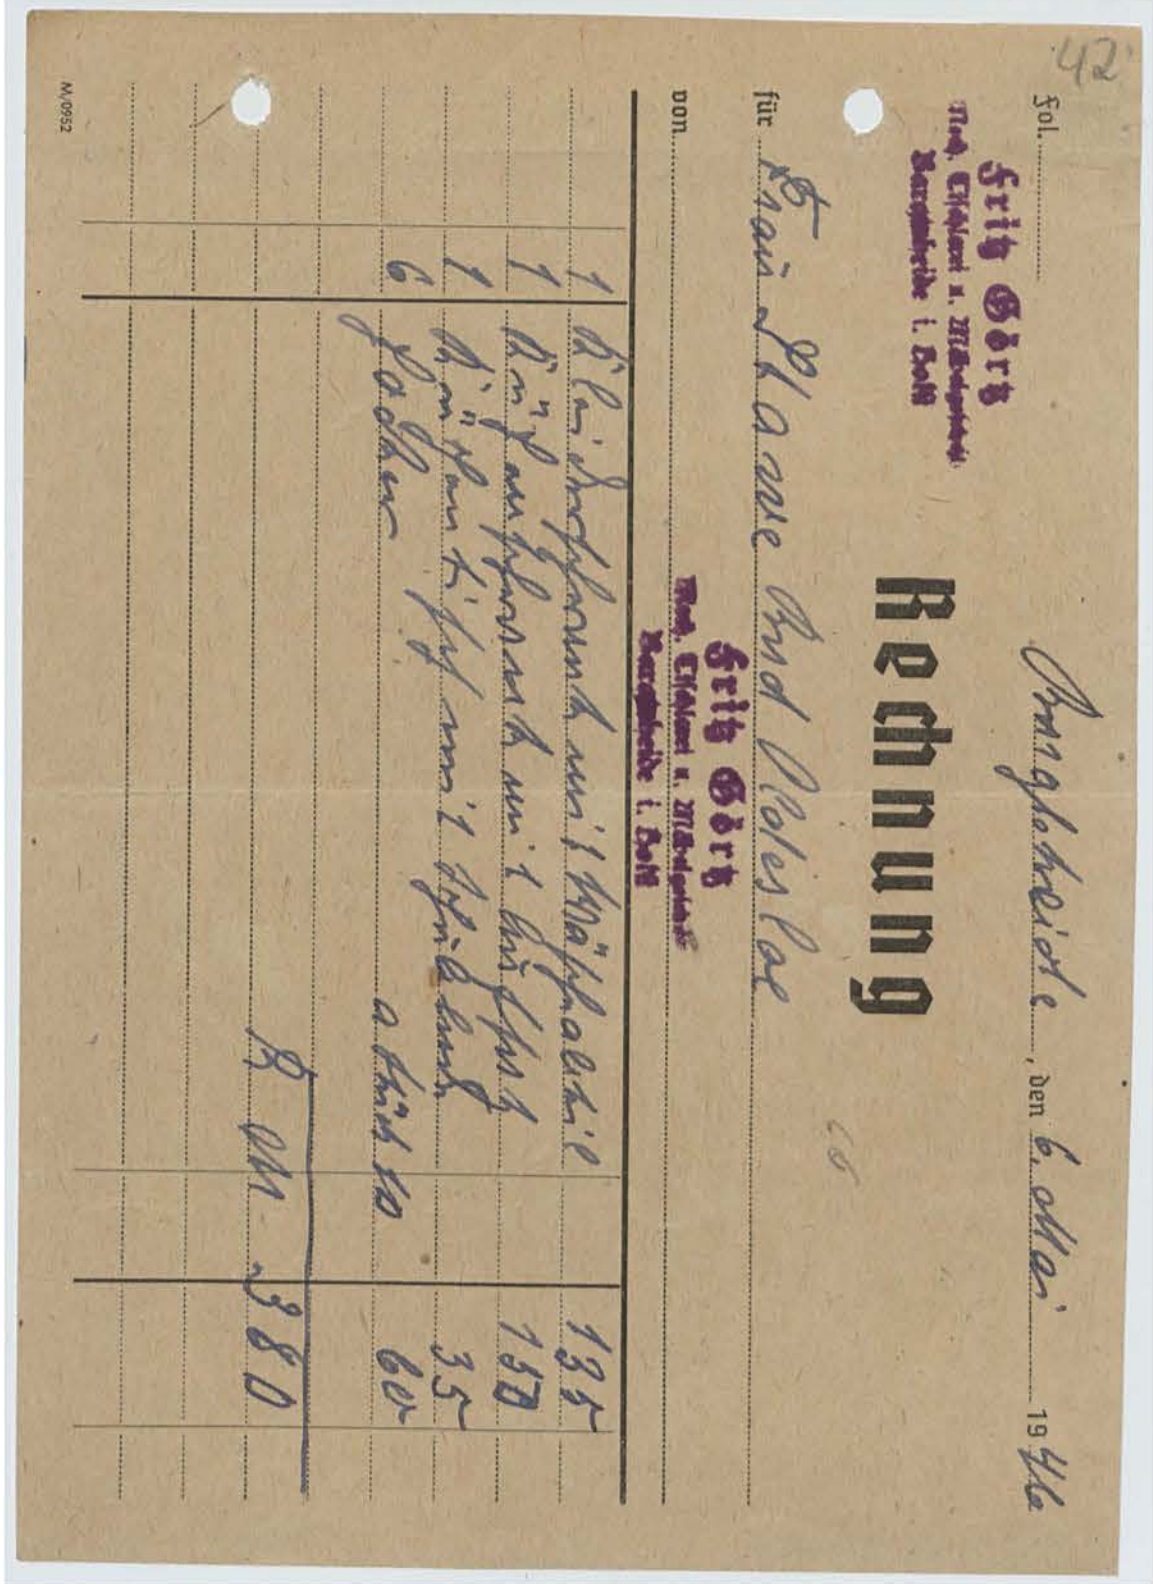 42
Fol.
Bargteheide, den 6. Mai 1946
Fritz Görtz
Mech. Tischlerei u. Möbelgeschäft
Bargteheide i. Holst
Rechnung
für Frau Stawe Bad Oldesloe
von
Fritz Görtz
Mech. Tischlerei u. Möbelgeschäft
Bargteheide i. Holst
1 Kleiderschrank mit Wäscheabteil 135
1 Küchenschrank mit Aufsatz 150
1 Küchentisch mit Schublade 35
6 Hocker a Stück 10 60
R M 380
M/0952